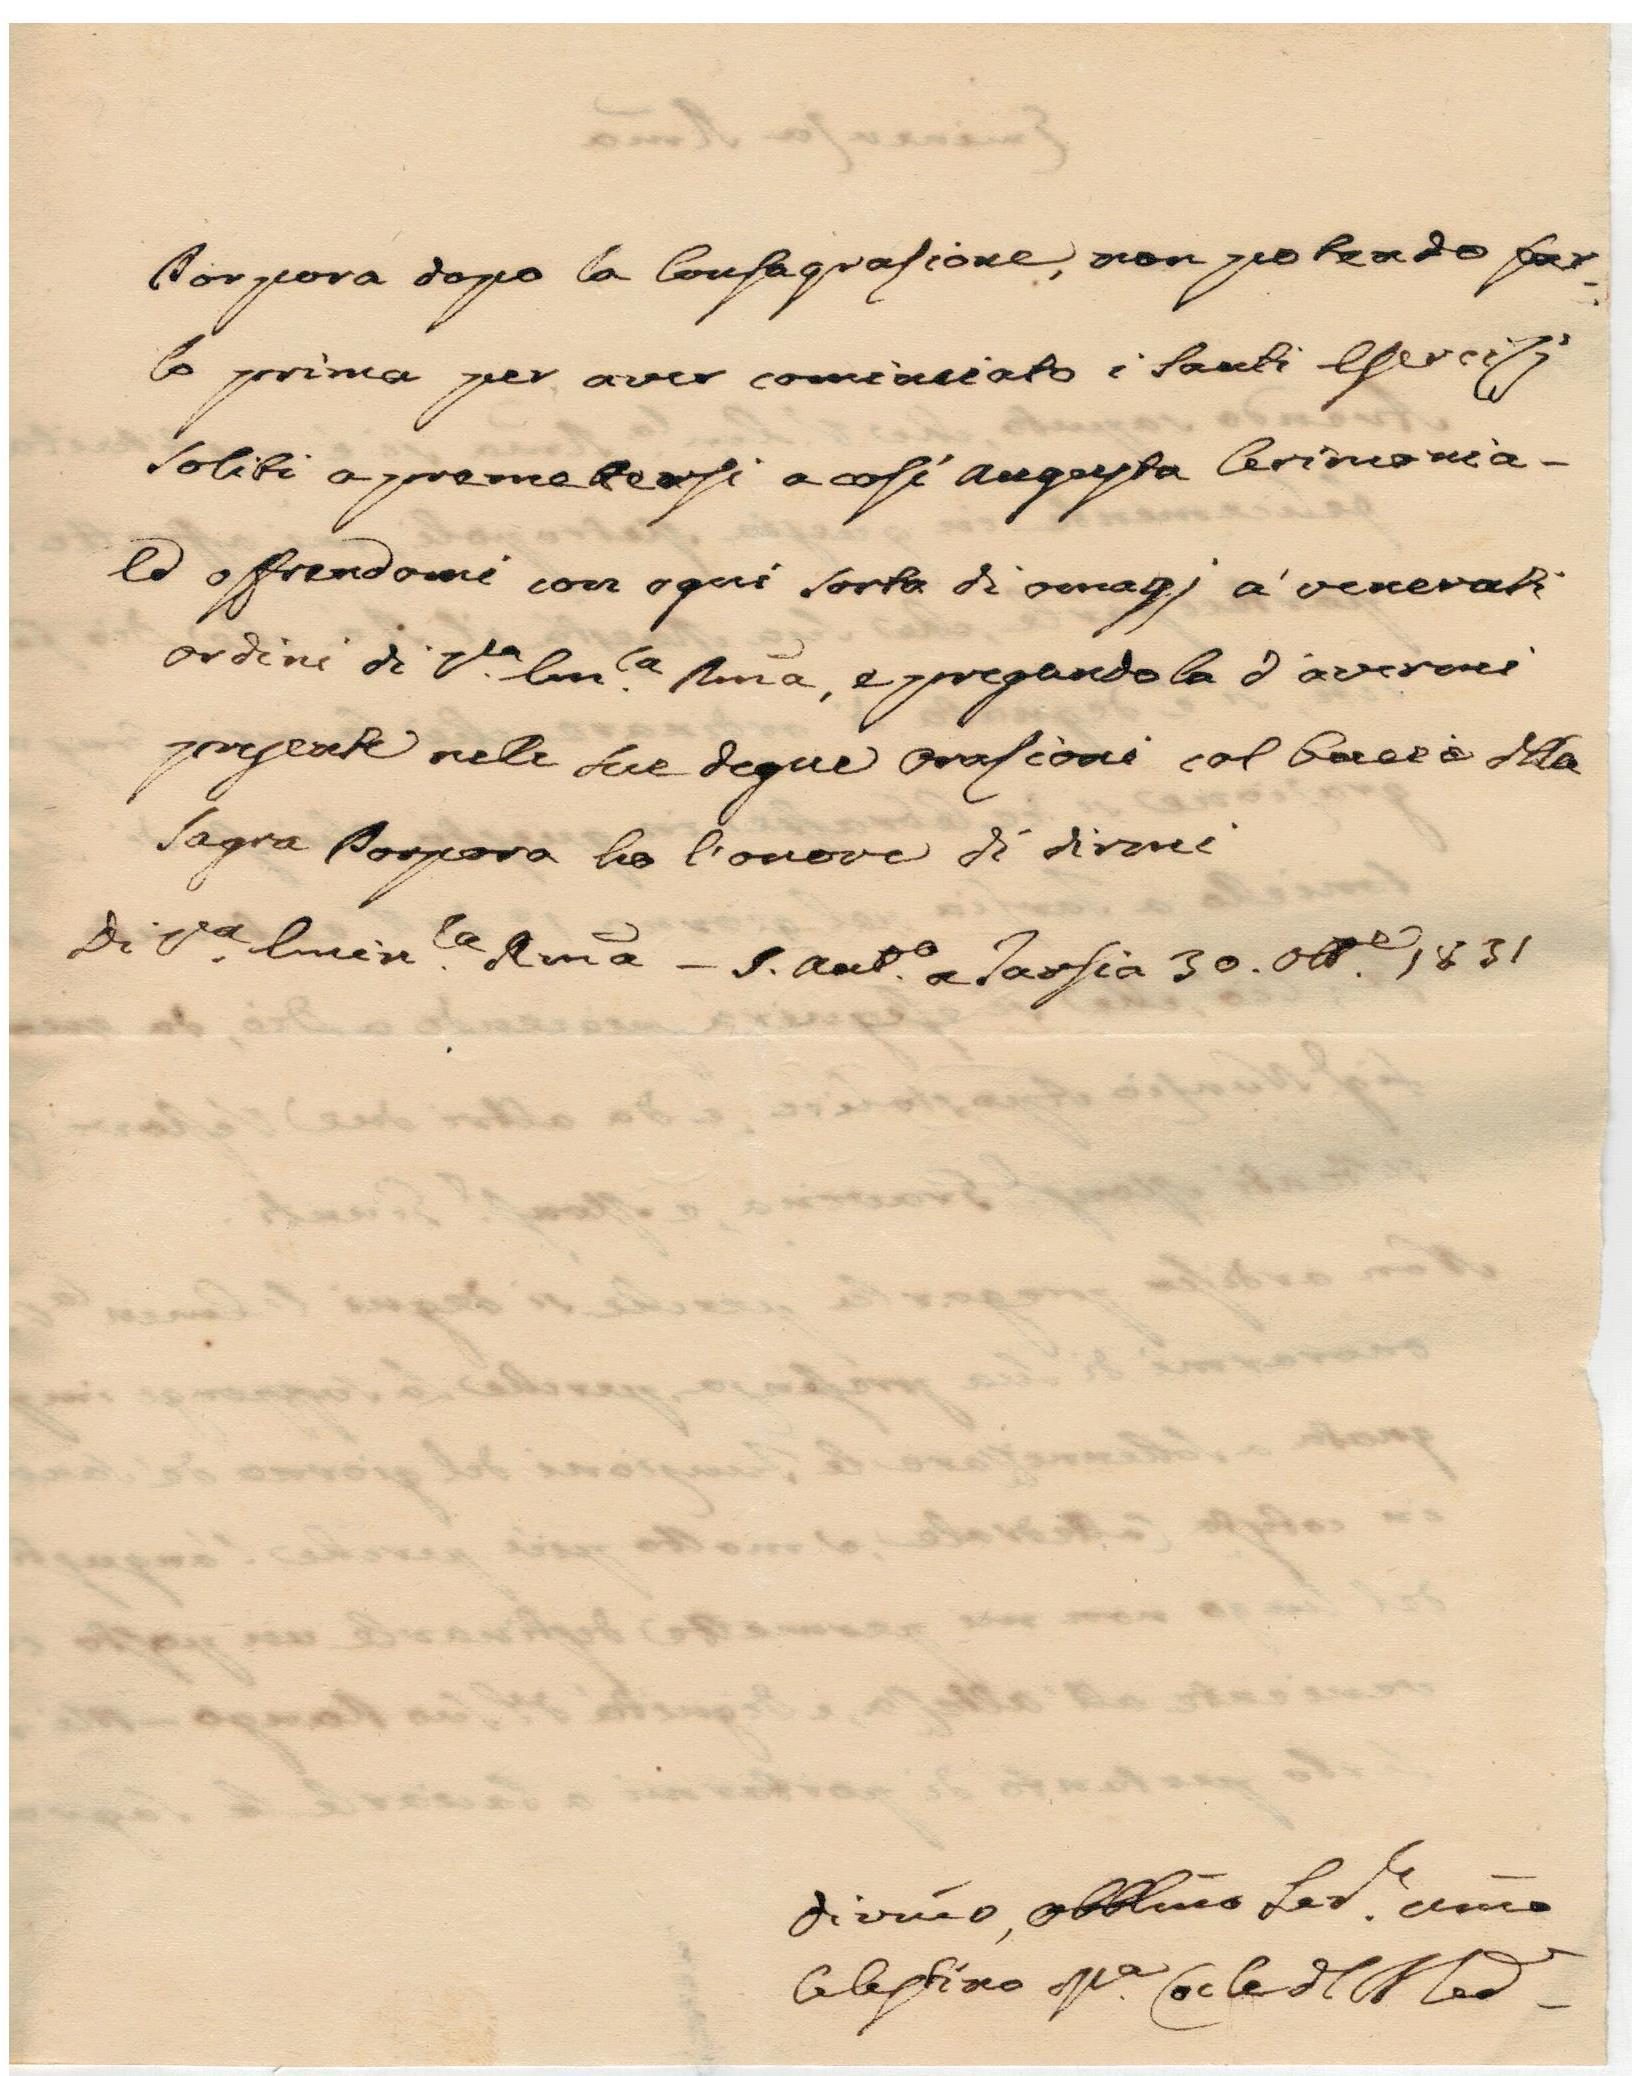 Porpora dopo la Consagrazione, non potendo far-
lo prima per aver cominciato i Santi Esercizj
soliti a premettersi a così augusta Cerimonia -
Ed offrendomi con ogni sorta di omagj a' venerati
ordini di V.ra Em.za Rma, e pregandola d'avermi
presente nelle sue degne Orazioni col bacio della
Sagra Porpora ho l'onore di dirmi
Di V.ra Emin.za Rma - S. Ant.o a Tarsia 30. Ott.e 1831
Divmo, obblmo Ser.e umo
Celestino M.a Cocle